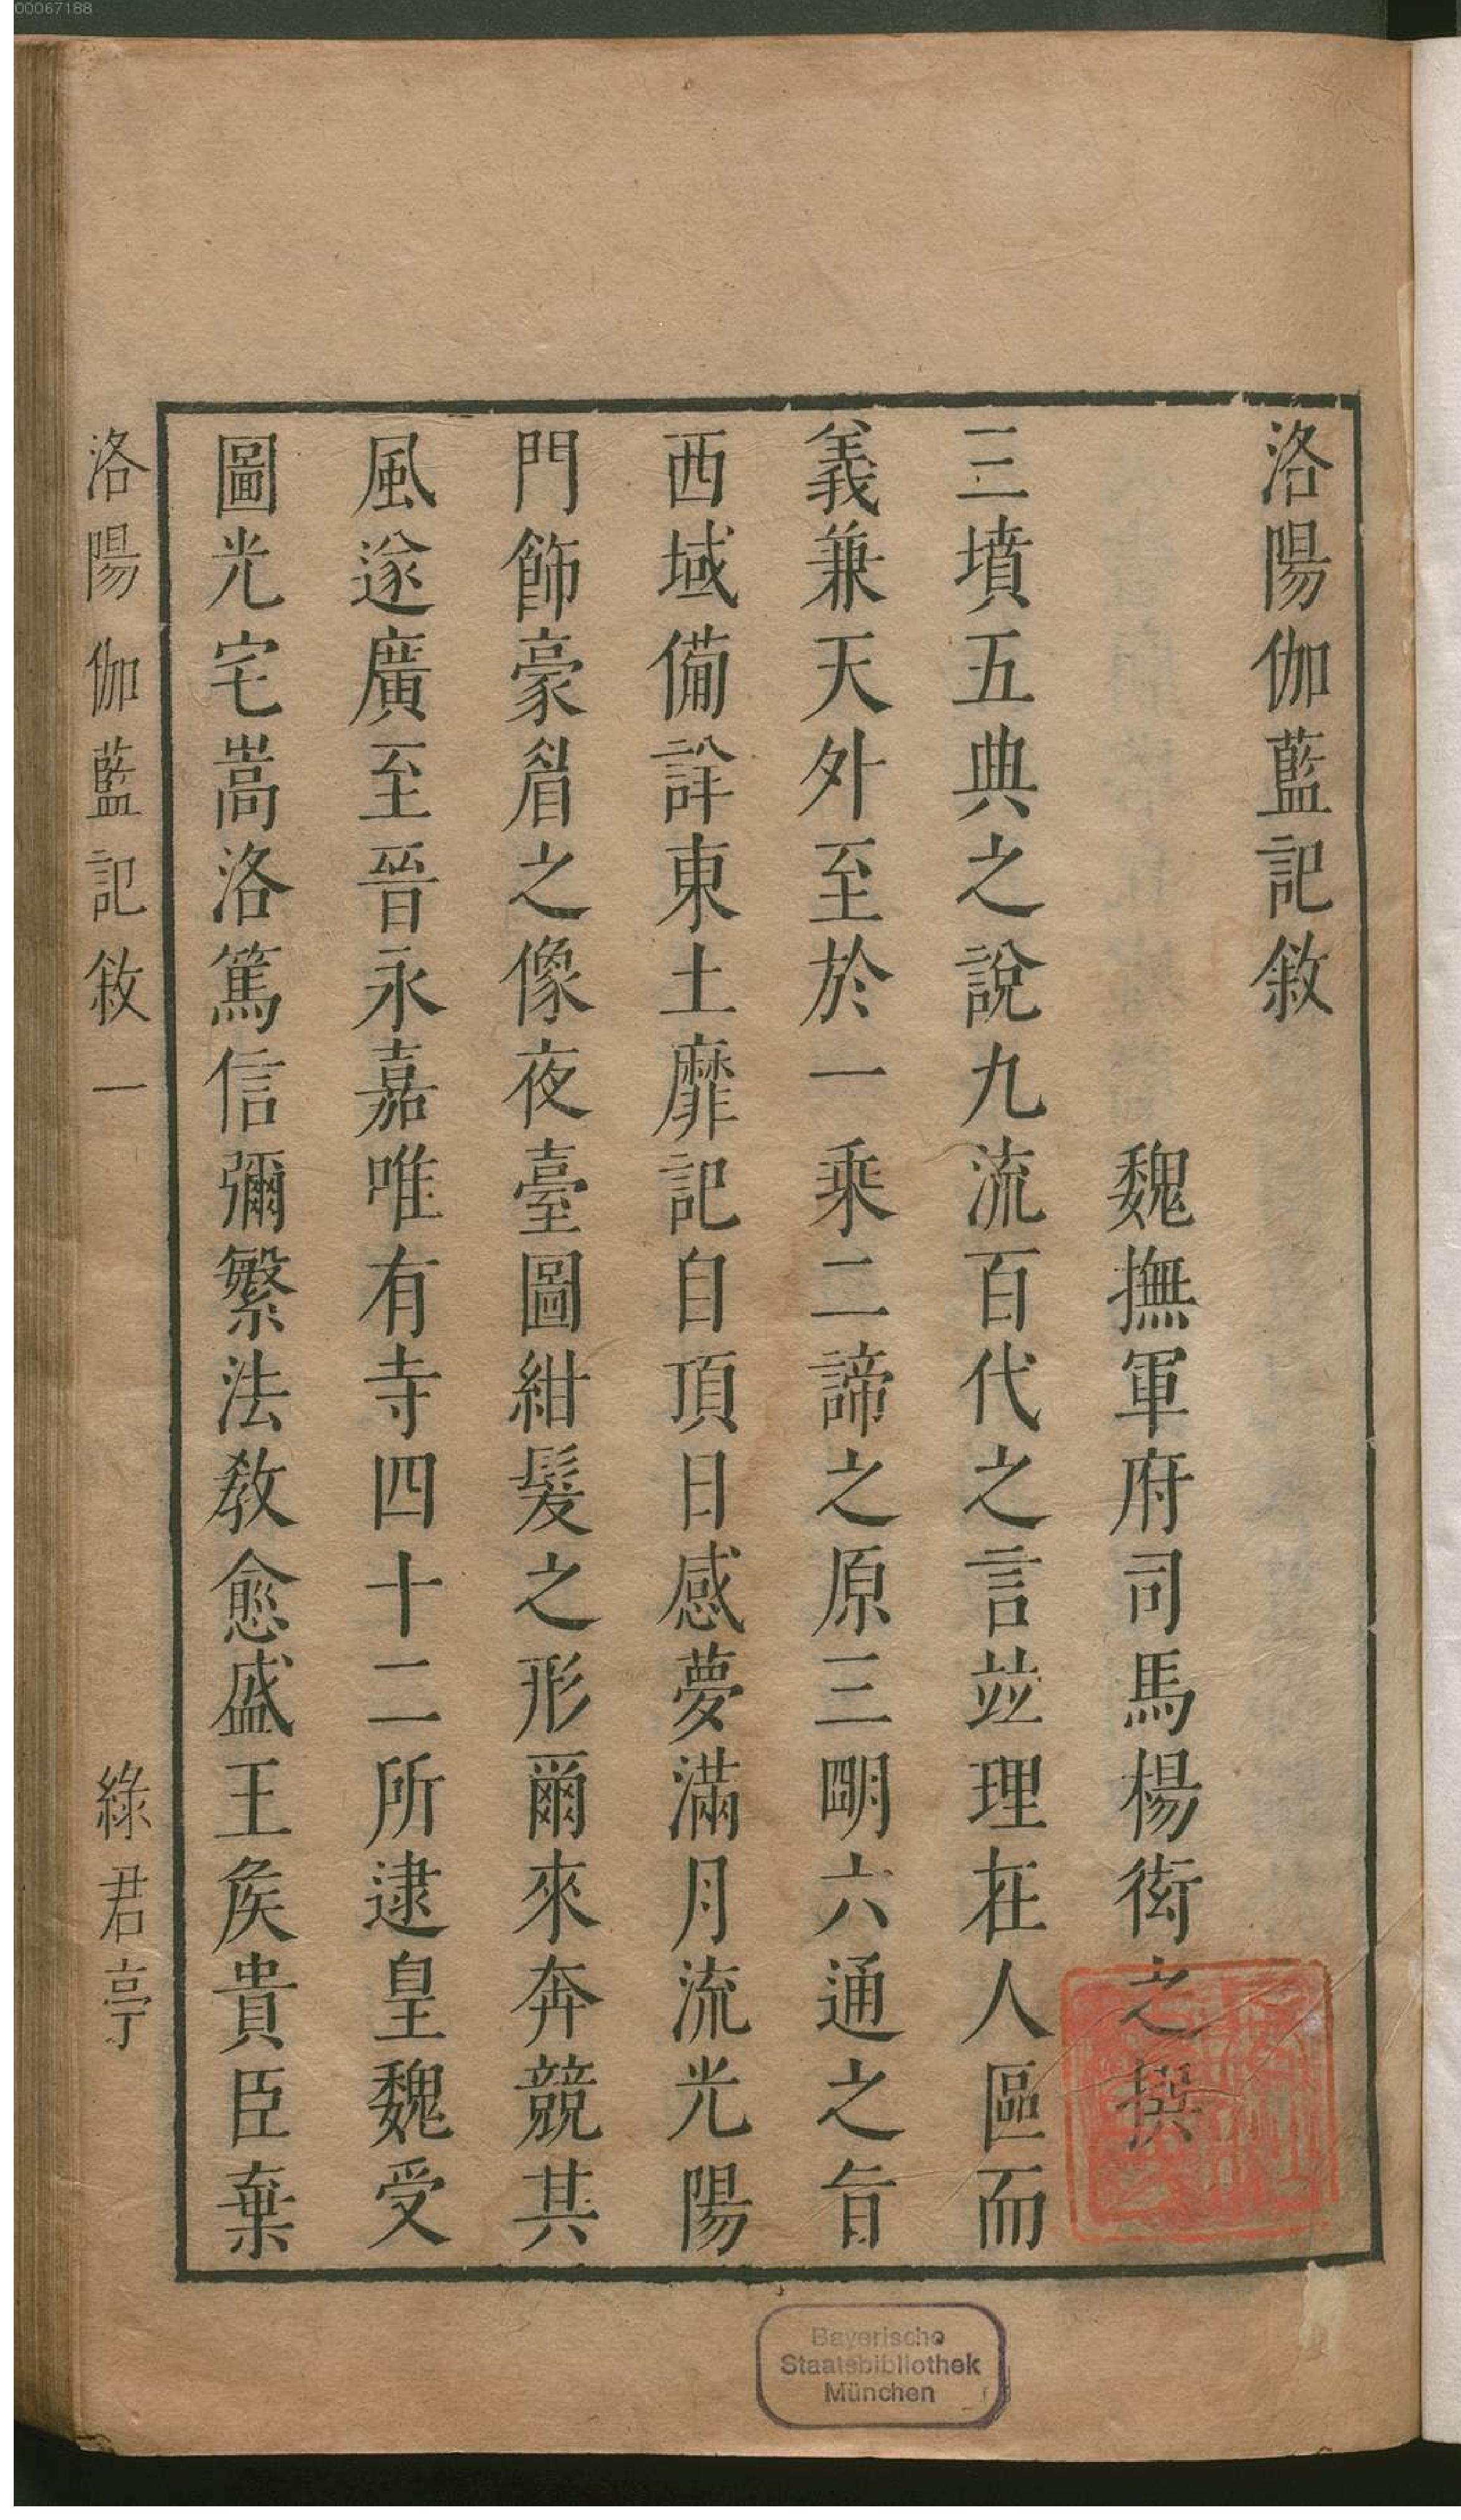 洛陽伽藍記敘
魏撫軍府司馬楊衒之撰
三墳五典之說九流百代之言竝理在人區而
義兼天外至於一乘二諦之原三明六通之旨
西域備詳東土靡記自頂日感夢滿月流光陽
門飾豪眉之像夜臺圖紺髮之形爾來奔競其
風遂廣至晉永嘉唯有寺四十二所逮皇魏受
圖光宅嵩洛篤信彌繁法教愈盛王侯貴臣棄
洛陽伽藍記敘 一 綠君亭
Bayerische
Staatsbibliothek
München
00067188